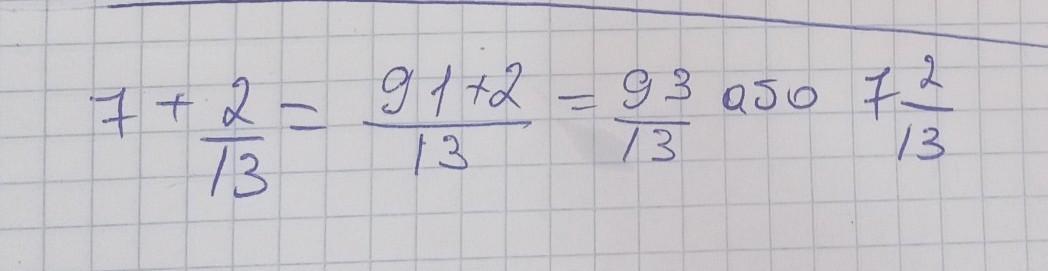 7 + 2/13 = 91+2/13 = 93/13 або 7 2/13